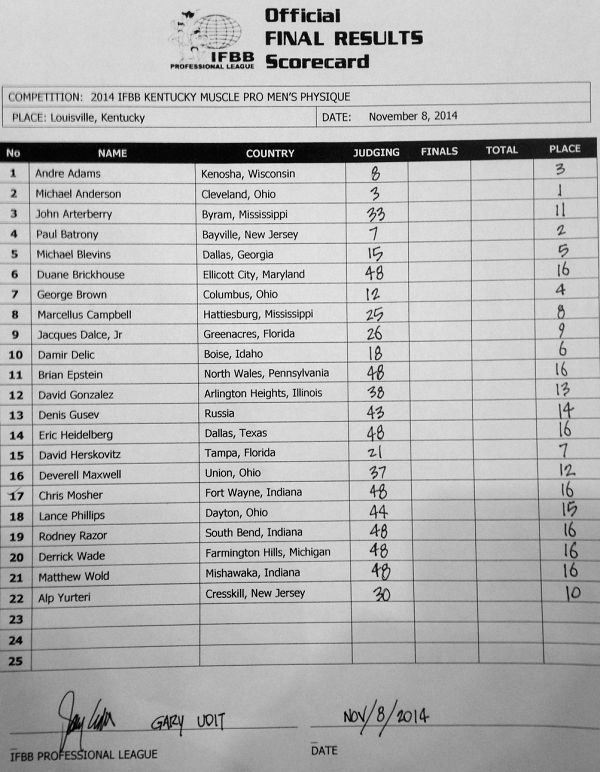 Official
FINAL RESULTS
IFBB
PROFESSIONAL LEAGUE Scorecard
COMPETITION: 2014 IFBB KENTUCKY MUSCLE PRO MEN'S PHYSIQUE
PLACE: Louisville, Kentucky DATE: November 8, 2014
No NAME COUNTRY JUDGING FINALS TOTAL PLACE
1 Andre Adams Kenosha, Wisconsin 8 3
2 Michael Anderson Cleveland, Ohio 3 1
3 John Arterberry Byram, Mississippi 33 11
4 Paul Batrony Bayville, New Jersey 7 2
5 Michael Blevins Dallas, Georgia 15 5
6 Duane Brickhouse Ellicott City, Maryland 48 16
7 George Brown Columbus, Ohio 12 4
8 Marcellus Campbell Hattiesburg, Mississippi 25 8
9 Jacques Dalce, Jr Greenacres, Florida 26 9
10 Damir Delic Boise, Idaho 18 6
11 Brian Epstein North Wales, Pennsylvania 48 16
12 David Gonzalez Arlington Heights, Illinois 38 13
13 Denis Gusev Russia 43 14
14 Eric Heidelberg Dallas, Texas 48 16
15 David Herskovitz Tampa, Florida 21 7
16 Deverell Maxwell Union, Ohio 37 12
17 Chris Mosher Fort Wayne, Indiana 48 16
18 Lance Phillips Dayton, Ohio 44 15
19 Rodney Razor South Bend, Indiana 48 16
20 Derrick Wade Farmington Hills, Michigan 48 16
21 Matthew Wold Mishawaka, Indiana 48 16
22 Alp Yurteri Cresskill, New Jersey 30 10
23
24
25
GARY UDIT NOV/8/2014
IFBB PROFESSIONAL LEAGUE DATE